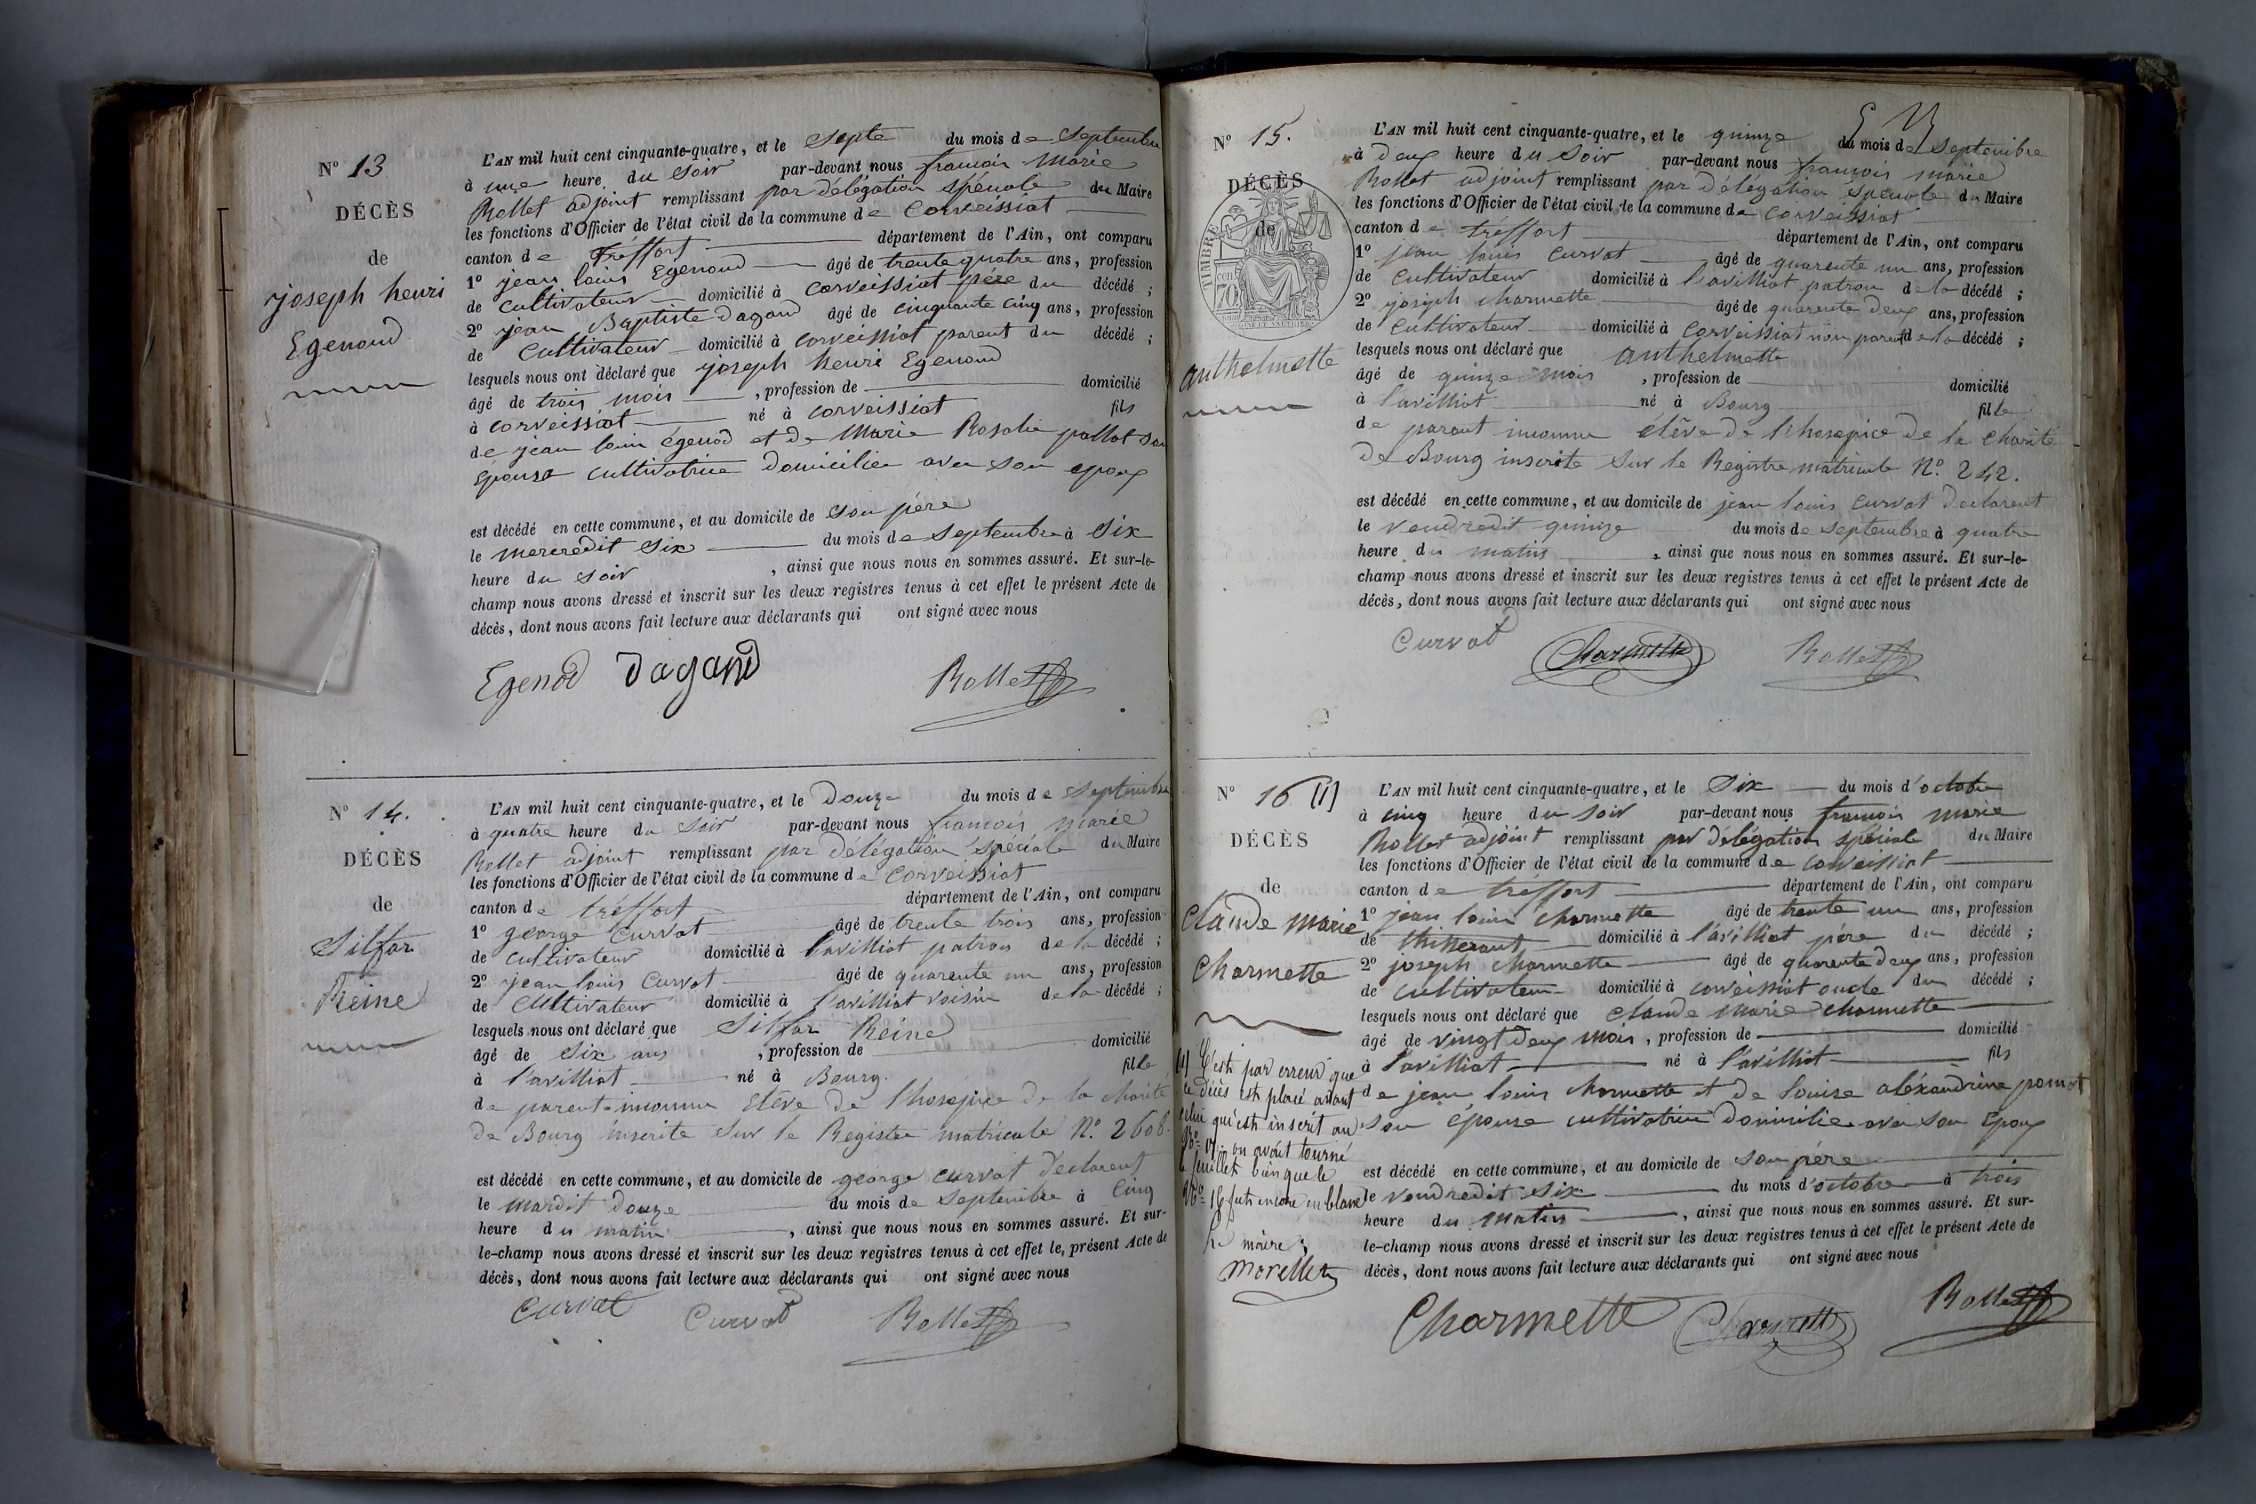 N° 13
DÉCÈS
de
joseph henri
Egenoud
L'AN mil huit cent cinquante-quatre, et le Septe du mois de Septembre
à une heure du Soir par-devant nous françois Marie
Rollet adjoint remplissant par délégation spéciale du Maire
les fonctions d'Officier de l'état civil de la commune de Corveissiat
canton de tréffort département de l'Ain, ont comparu
1° jean louis Egenoud âgé de trente quatre ans, profession
de cultivateur domicilié à corveissiat père du décédé ;
2° jean Baptiste Dagand âgé de cinquante cinq ans, profession
de Cultivateur domicilié à corveissiat parent du décédé ;
lesquels nous ont déclaré que joseph henri Egenoud
âgé de trois mois , profession de domicilié
à corveissiat né à corveissiat fils
de jean louis égenod et de Marie Rosalie pallot son
épouse cultivatrice domicilier aven son epoux
est décédé en cette commune, et au domicile de son père
le mercredit Six du mois de Septembre à Six
heure du Soir , ainsi que nous nous en sommes assuré. Et sur-le-
champ nous avons dressé et inscrit sur les deux registres tenus à cet effet le présent Acte de
décès, dont nous avons fait lecture aux déclarants qui ont signé avec nous
Egenod Dagand Rollet
N° 14.
DÉCÈS
de
Silfar
Reine
L'AN mil huit cent cinquante-quatre, et le Douze du mois de Septembre
à quatre heure du Soir par-devant nous françois marie
Rollet adjoint remplissant par délégation spéciale du Maire
les fonctions d'Officier de l'état civil de la commune de Corveissiat
canton de tréffort département de l'Ain, ont comparu
1° george Curvat âgé de trente trois ans, profession
de cultivateur domicilié à lavilliat patron de la décédé ;
2° jean louis Curvat âgé de quarente un ans, profession
de Cultivateur domicilié à lavilliat voisin de la décédé ;
lesquels nous ont déclaré que Silfar Reine
âgé de Six ans , profession de domicilié
à lavilliat né à Bourg fille
de parent inconnu Elève de l'hosepice de la charite
de Bourg inscrite sur le Registre matricule N° 2606.
est décédé en cette commune, et au domicile de george curvat déclarent
le mardit douze du mois de Septembre à Cinq
heure du matin , ainsi que nous nous en sommes assuré. Et sur-
le-champ nous avons dressé et inscrit sur les deux registres tenus à cet effet le, présent Acte de
décès, dont nous avons fait lecture aux déclarants qui ont signé avec nous
Curvat Curvat Rollet
N° 15.
DÉCÈS
de
TIMBRE
anthelmette
L'AN mil huit cent cinquante-quatre, et le quinze du mois de Septembre
à Deux heure du Soir par-devant nous françois marie
Rollet adjoint remplissant par délégation spéciale du Maire
les fonctions d'Officier de l'état civil de la commune de Corveissiat
canton de tréffort département de l'Ain, ont comparu
1° jean louis Curvat âgé de quarente un ans, profession
de Cultivateur domicilié à lavilliat patron de la décédé ;
2° joseph charmette âgé de quarente deux ans, profession
de Cultivateur domicilié à Corveissiat non parent de la décédé ;
lesquels nous ont déclaré que anthelmette
âgé de quinze mois , profession de domicilié
à lavilliat né à Bourg fille
de parant inconnu élêve de l'hosepice de la charité
De Bourg inscrite Sur le Registre matricule N° 242.
est décédé en cette commune, et au domicile de jean louis curvat déclarent
le Vendredit quinze du mois de septembre à quatre
heure du matin , ainsi que nous nous en sommes assuré. Et sur-le-
champ nous avons dressé et inscrit sur les deux registres tenus à cet effet le présent Acte de
décès, dont nous avons fait lecture aux déclarants qui ont signé avec nous
Curvat Charmette Rollet
N° 16 (1)
DÉCÈS
de
Claude marie
Charmette
(1) C'est par erreur que
ce décès est placé avant
celui qui est inscrit au
N° 17. on avait tourné
le feuillet bien que le
N° 16 fut encore en blanc
Le maire,
Morellet
L'AN mil huit cent cinquante-quatre, et le Six du mois d'octobre
à cinq heure du Soir par-devant nous françois marie
Rollet adjoint remplissant par délégation spéciale du Maire
les fonctions d'Officier de l'état civil de la commune de Corveissiat
canton de tréffort département de l'Ain, ont comparu
1° jean louis charmette âgé de trente un ans, profession
de thisserant domicilié à l'avilliat père du décédé ;
2° joseph charmette âgé de quarente deux ans, profession
de cultivateur domicilié à corveissiat oncle du décédé ;
lesquels nous ont déclaré que claude Marie charmette
âgé de vingt deux mois , profession de domicilié
à lavilliat né à l'avilliat fils
de jean louis charmette et de louise aléxandrine pomat
son épouse cultivatrice domicilie aven son Epoux
est décédé en cette commune, et au domicile de son père
le vendredit six du mois d'octobre à trois
heure du matin , ainsi que nous nous en sommes assuré. Et sur-
le-champ nous avons dressé et inscrit sur les deux registres tenus à cet effet le présent Acte de
décès, dont nous avons fait lecture aux déclarants qui ont signé avec nous
Charmette Charmette Rollet